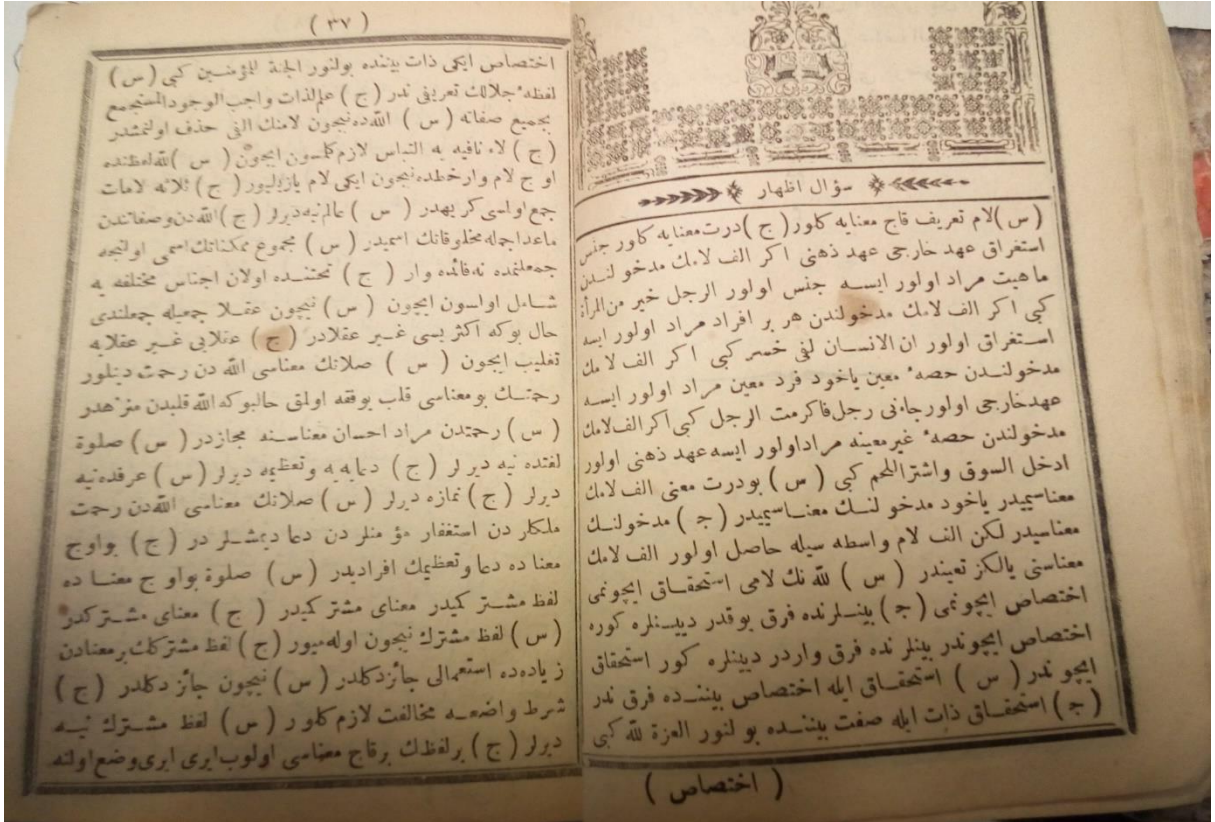 سؤال اظهار
(س) لام تعريف قاچ معنايه كلور (ج) درت معنايه كلور جنس
استغراق عهد خارجى عهد ذهنى اكر الف لامك مدخولندن
ماهيت مراد اولور ايسه جنس اولور الرجل خير من المرأة
كبى اكر الف لامك مدخولندن هر بر افراد مراد اولور ايسه
استغراق اولور ان الانسان لفى خسر كبى اكر الف لامك
مدخولندن حصهٔ معين ياخود فرد معين مراد اولور ايسه
عهد خارجى اولور جاءنى رجل فاكرمت الرجل كبى اكر الف لامك
مدخولندن حصهٔ غير معينه مراد اولور ايسه عهد ذهنى اولور
ادخل السوق واشتر اللحم كبى (س) بو درت معنى الف لامك
معناسيميدر ياخود مدخولنك معناسيميدر (ج) مدخولنك
معناسيدر لكن الف لام واسطه سيله حاصل اولور الف لامك
معناسى يالكز تعيندر (س) لله نك لامى استحقاق ايچونمى
اختصاص ايچونمى (ج) بينلرنده فرق يوقدر ديينلره كوره
اختصاص ايچوندر بينلرنده فرق واردر ديينلره كور استحقاق
ايچوندر (س) استحقاق ايله اختصاص بيننده فرق ندر
(ج) استحقاق ذات ايله صفت بيننده بولنور العزة لله كبى
(اختصاص)
(٣٧)
اختصاص ايكى ذات بيننده بولنور الجنة للمؤمنين كبى (س)
لفظهٔ جلالك تعريفى ندر (ج) علم لذات واجب الوجود المستجمع
بجميع صفاته (س) اللهده نيچون لامنك الفى حذف اولنمشدر
(ج) لاء نافيه يه التباس لازم كلمسون ايچون (س) لله لفظنده
اوج لام وار خطده نيچون ايكى لام يازيليور (ج) ثلاثه لامات
جمع اولمسى كريهدر (س) عالم نيه ديرلر (ج) اللهدن وصفاتندن
ماعدا جمله مخلوقاتك اسميدر (س) مجموع ممكناتك اسمى اولنجه
جمعلنمده نه فائده وار (ج) تحتنده اولان اجناس مختلفه يه
شامل اولسون ايچون (س) نيچون عقلا جمعيله جمعلندى
حال بوكه اكثريسى غير عقلادر (ج) عقلايى غير عقلايه
تغليب ايچون (س) صلانك معناسى الله دن رحمت دينلور
رحمتك بو معناسى قلب يوفقه اولمق حالبوكه الله قلبدن منزهدر
(س) رحمتدن مراد احسان معناسنه مجازدر (س) صلوة
لغتده نيه ديرلر (ج) دعايه يه وتعظيمه ديرلر (س) عرفده نيه
ديرلر (ج) نمازه ديرلر (س) صلانك معناسى اللهدن رحمت
ملكلردن استغفار مؤمنلردن دعا ديمشلردر (ج) بو اوج
معناده دعا وتعظيمك افراديدر (س) صلوة بو اوج معناده
لفظ مشتركميدر معناى مشتركميدر (ج) معناى مشتركدر
(س) لفظ مشترك نيچون اوله ميور (ج) لفظ مشتركك بر معنادن
زياده ده استعمالى جائز دكلدر (س) نيچون جائز دكلدر (ج)
شرط واضعه مخالفت لازم كلور (س) لفظ مشترك نيه
ديرلر (ج) بر لفظك بر قاج معناسى اولوب ايرى ايرى وضع اولنه